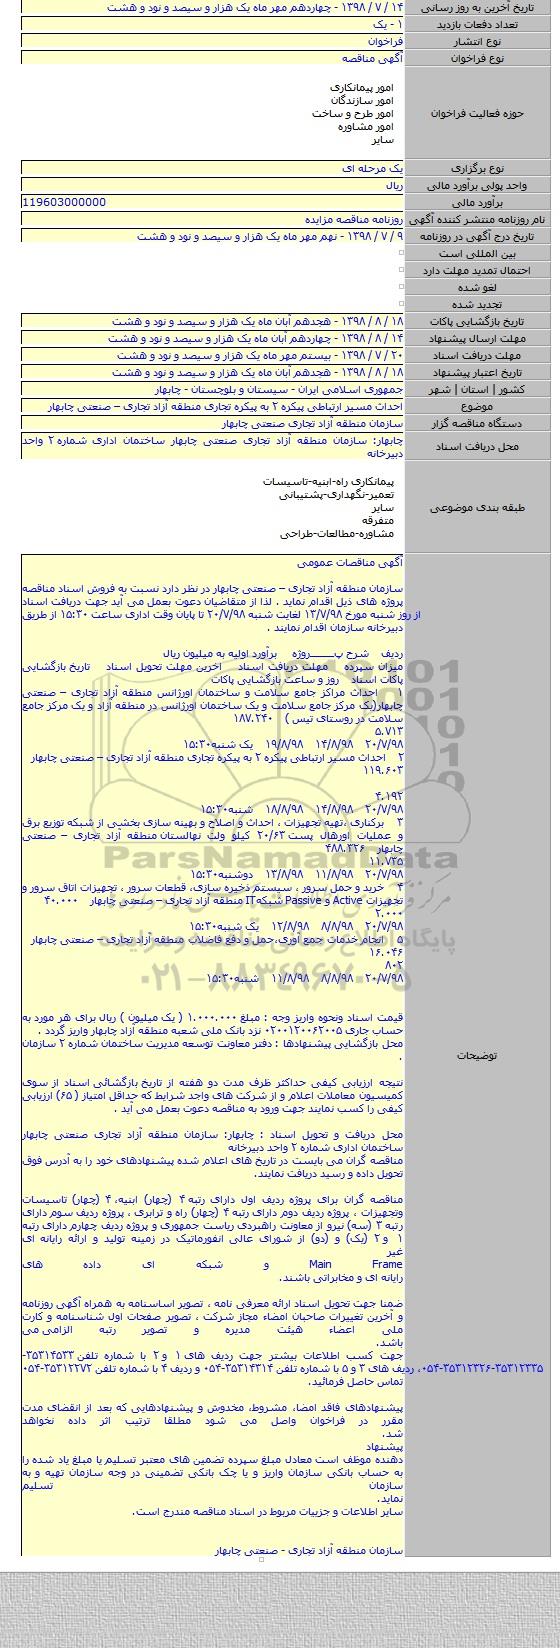 تاریخ آخرین به روز رسانی ۱۴ / ۷ / ۱۳۹۸ - چهاردهم مهر ماه یک هزار و سیصد و نود و هشت
تعداد دفعات بازدید ۱ - یک
نوع انتشار فراخوان
نوع فراخوان آگهی مناقصه
حوزه فعالیت فراخوان
امور پیمانکاری
امور سازندگان
امور طرح و ساخت
امور مشاوره
سایر
نوع برگزاری یک مرحله ای
واحد پولی برآورد مالی ریال
برآورد مالی 119603000000
نام روزنامه منتشر کننده آگهی روزنامه مناقصه مزایده
تاریخ درج آگهی در روزنامه ۹ / ۷ / ۱۳۹۸ - نهم مهر ماه یک هزار و سیصد و نود و هشت
بین المللی است
احتمال تمدید مهلت دارد
لغو شده
تجدید شده
تاریخ بازگشایی پاکات ۱۸ / ۸ / ۱۳۹۸ - هجدهم آبان ماه یک هزار و سیصد و نود و هشت
مهلت ارسال پیشنهاد ۱۴ / ۸ / ۱۳۹۸ - چهاردهم آبان ماه یک هزار و سیصد و نود و هشت
مهلت دریافت اسناد ۲۰ / ۷ / ۱۳۹۸ - بیستم مهر ماه یک هزار و سیصد و نود و هشت
تاریخ اعتبار پیشنهاد ۱۸ / ۸ / ۱۳۹۸ - هجدهم آبان ماه یک هزار و سیصد و نود و هشت
کشور | استان | شهر جمهوری اسلامی ایران - سیستان و بلوچستان - چابهار
موضوع احداث مسیر ارتباطی پیکره ۲ به پیکره تجاری منطقه آزاد تجاری – صنعتی چابهار
دستگاه مناقصه گزار سازمان منطقه آزاد تجاری صنعتی چابهار
محل دریافت اسناد چابهار: سازمان منطقه آزاد تجاری صنعتی چابهار ساختمان اداری شماره ۲ واحد
دبیرخانه
طبقه بندی موضوعی
پیمانکاری راه-ابنیه-تاسیسات
تعمیر-نگهداری-پشتیبانی
سایر
متفرقه
مشاوره-مطالعات-طراحی
توضیحات
آگهی مناقصات عمومی
سازمان منطقه آزاد تجاری – صنعتی چابهار در نظر دارد نسبت به فروش اسناد مناقصه
پروژه های ذیل اقدام نماید . لذا از متقاضیان دعوت بعمل می آید جهت دریافت اسناد
از روز شنبه مورخ ۱۳/۷/۹۸ لغایت شنبه ۲۰/۷/۹۸ تا پایان وقت اداری ساعت ۱۵:۳۰ از طریق
دبیرخانه سازمان اقدام نمایند .
ردیف شرح پـــــروژه برآورد اولیه به میلیون ریال
میزان سپرده مهلت دریافت اسناد آخرین مهلت تحویل اسناد تاریخ بازگشایی
پاکات اسناد روز و ساعت بازگشایی پاکات
۱ احداث مراکز جامع سلامت و ساختمان اورژانس منطقه آزاد تجاری – صنعتی
چابهار(یک مرکز جامع سلامت و یک ساختمان اورژانس در منطقه آزاد و یک مرکز جامع
سلامت در روستای تیس ) ۱۸۷.۲۴۰
۵.۷۱۳
۲۰/۷/۹۸ ۱۴/۸/۹۸ ۱۹/۸/۹۸ یک شنبه۱۵:۳۰
۲ احداث مسیر ارتباطی پیکره ۲ به پیکره تجاری منطقه آزاد تجاری – صنعتی چابهار
۱۱۹.۶۰۳
۴.۱۹۲
۲۰/۷/۹۸ ۱۴/۸/۹۸ ۱۸/۸/۹۸ شنبه۱۵:۳۰
۳ برکناری ،تهیه تجهیزات ، احداث و اصلاح و بهینه سازی بخشی از شبکه توزیع برق
و عملیات اورهال پست ۲۰/۶۳ کیلو ولت نهالستان منطقه آزاد تجاری – صنعتی
چابهار ۴۸۸.۳۲۶
۱۱.۷۳۵
۲۰/۷/۹۸ ۱۱/۸/۹۸ ۱۳/۸/۹۸ دوشنبه۱۵:۳۰
۴ خرید و حمل سرور ، سیستم ذخیره سازی، قطعات سرور ، تجهیزات اتاق سرور و
تجهیزات Active و Passive شبکهIT منطقه آزاد تجاری – صنعتی چابهار ۴۰.۰۰۰
۲.۰۰۰
۲۰/۷/۹۸ ۸/۸/۹۸ ۱۲/۸/۹۸ یک شنبه۱۵:۳۰
۵ انجام خدمات جمع آوری،حمل و دفع فاضلاب منطقه آزاد تجاری – صنعتی چابهار
۱۶.۰۴۶
۸۰۲
۲۰/۷/۹۸ ۸/۸/۹۸ ۱۱/۸/۹۸ شنبه۱۵:۳۰
ParsNamadData
۰۲۱-۸۸۳۴۹۶۷۰-۵
قیمت اسناد ونحوه واریز وجه : مبلغ ۱.۰۰۰.۰۰۰ ( یک میلیون ) ریال برای هر مورد به
حساب جاری ۰۲۰۰۱۲۰۰۶۲۰۰۵ نزد بانک ملی شعبه منطقه آزاد چابهار واریز گردد .
محل بازگشایی پیشنهادها : دفتر معاونت توسعه مدیریت ساختمان شماره ۲ سازمان
.
نتیجه ارزیابی کیفی حداکثر ظرف مدت دو هفته از تاریخ بازگشائی اسناد از سوی
کمیسیون معاملات اعلام و از شرکت های واجد شرایط که حداقل امتیاز (۶۵) ارزیابی
کیفی را کسب نمایند جهت ورود به مناقصه دعوت بعمل می آید .
محل دریافت و تحویل اسناد : چابهار: سازمان منطقه آزاد تجاری صنعتی چابهار
ساختمان اداری شماره ۲ واحد دبیرخانه
مناقصه گران می بایست در تاریخ های اعلام شده پیشنهادهای خود را به آدرس فوق
تحویل داده و رسید دریافت نمایند.
مناقصه گران برای پروژه ردیف اول دارای رتبه ۴ (چهار) ابنیه، ۴ (چهار) تاسیسات
وتجهیزات ، پروژه ردیف دوم دارای رتبه ۴ (چهار) راه و ترابری ، پروژه ردیف سوم دارای
رتبه ۳ (سه) نیرو از معاونت راهبردی ریاست جمهوری و پروژه ردیف چهارم دارای رتبه
۱ و ۲ (یک) و (دو) از شورای عالی انفورماتیک در زمینه تولید و ارائه رایانه ای
غیر
Main Frame و شبکه ای داده های
رایانه ای و مخابراتی باشند.
ضمنا جهت تحویل اسناد ارائه معرفی نامه ، تصویر اساسنامه به همراه آگهی روزنامه
و آخرین تغییرات صاحبان امضاء مجاز شرکت ، تصویر صفحات اول شناسنامه و کارت
ملی اعضاء هیئت مدیره و تصویر رتبه الزامی می
باشد.
جهت کسب اطلاعات بیشتر جهت ردیف های ۱ و ۲ با شماره تلفن ۳۵۳۱۴۵۳۳-
۰۵۴-۳۵۳۱۲۳۲۶-۳۵۳۱۲۳۳۵، ردیف های ۳ و ۵ با شماره تلفن ۳۵۳۱۴۳۱۴-۰۵۴ و ردیف ۴ با شماره تلفن ۳۵۳۱۲۲۷۲-۰۵۴
تماس حاصل فرمائید.
پیشنهادهای فاقد امضا، مشروط، مخدوش و پیشنهادهایی که بعد از انقضای مدت
مقرر در فراخوان واصل می شود مطلقا ترتیب اثر داده نخواهد
شد.
پیشنهاد
دهنده موظف است معادل مبلغ سپرده تضمین های معتبر تسلیم یا مبلغ یاد شده را
به حساب بانکی سازمان واریز و یا چک بانکی تضمینی در وجه سازمان تهیه و به
سازمان تسلیم
نماید.
سایر اطلاعات و جزییات مربوط در اسناد مناقصه مندرج است.
سازمان منطقه آزاد تجاری - صنعتی چابهار